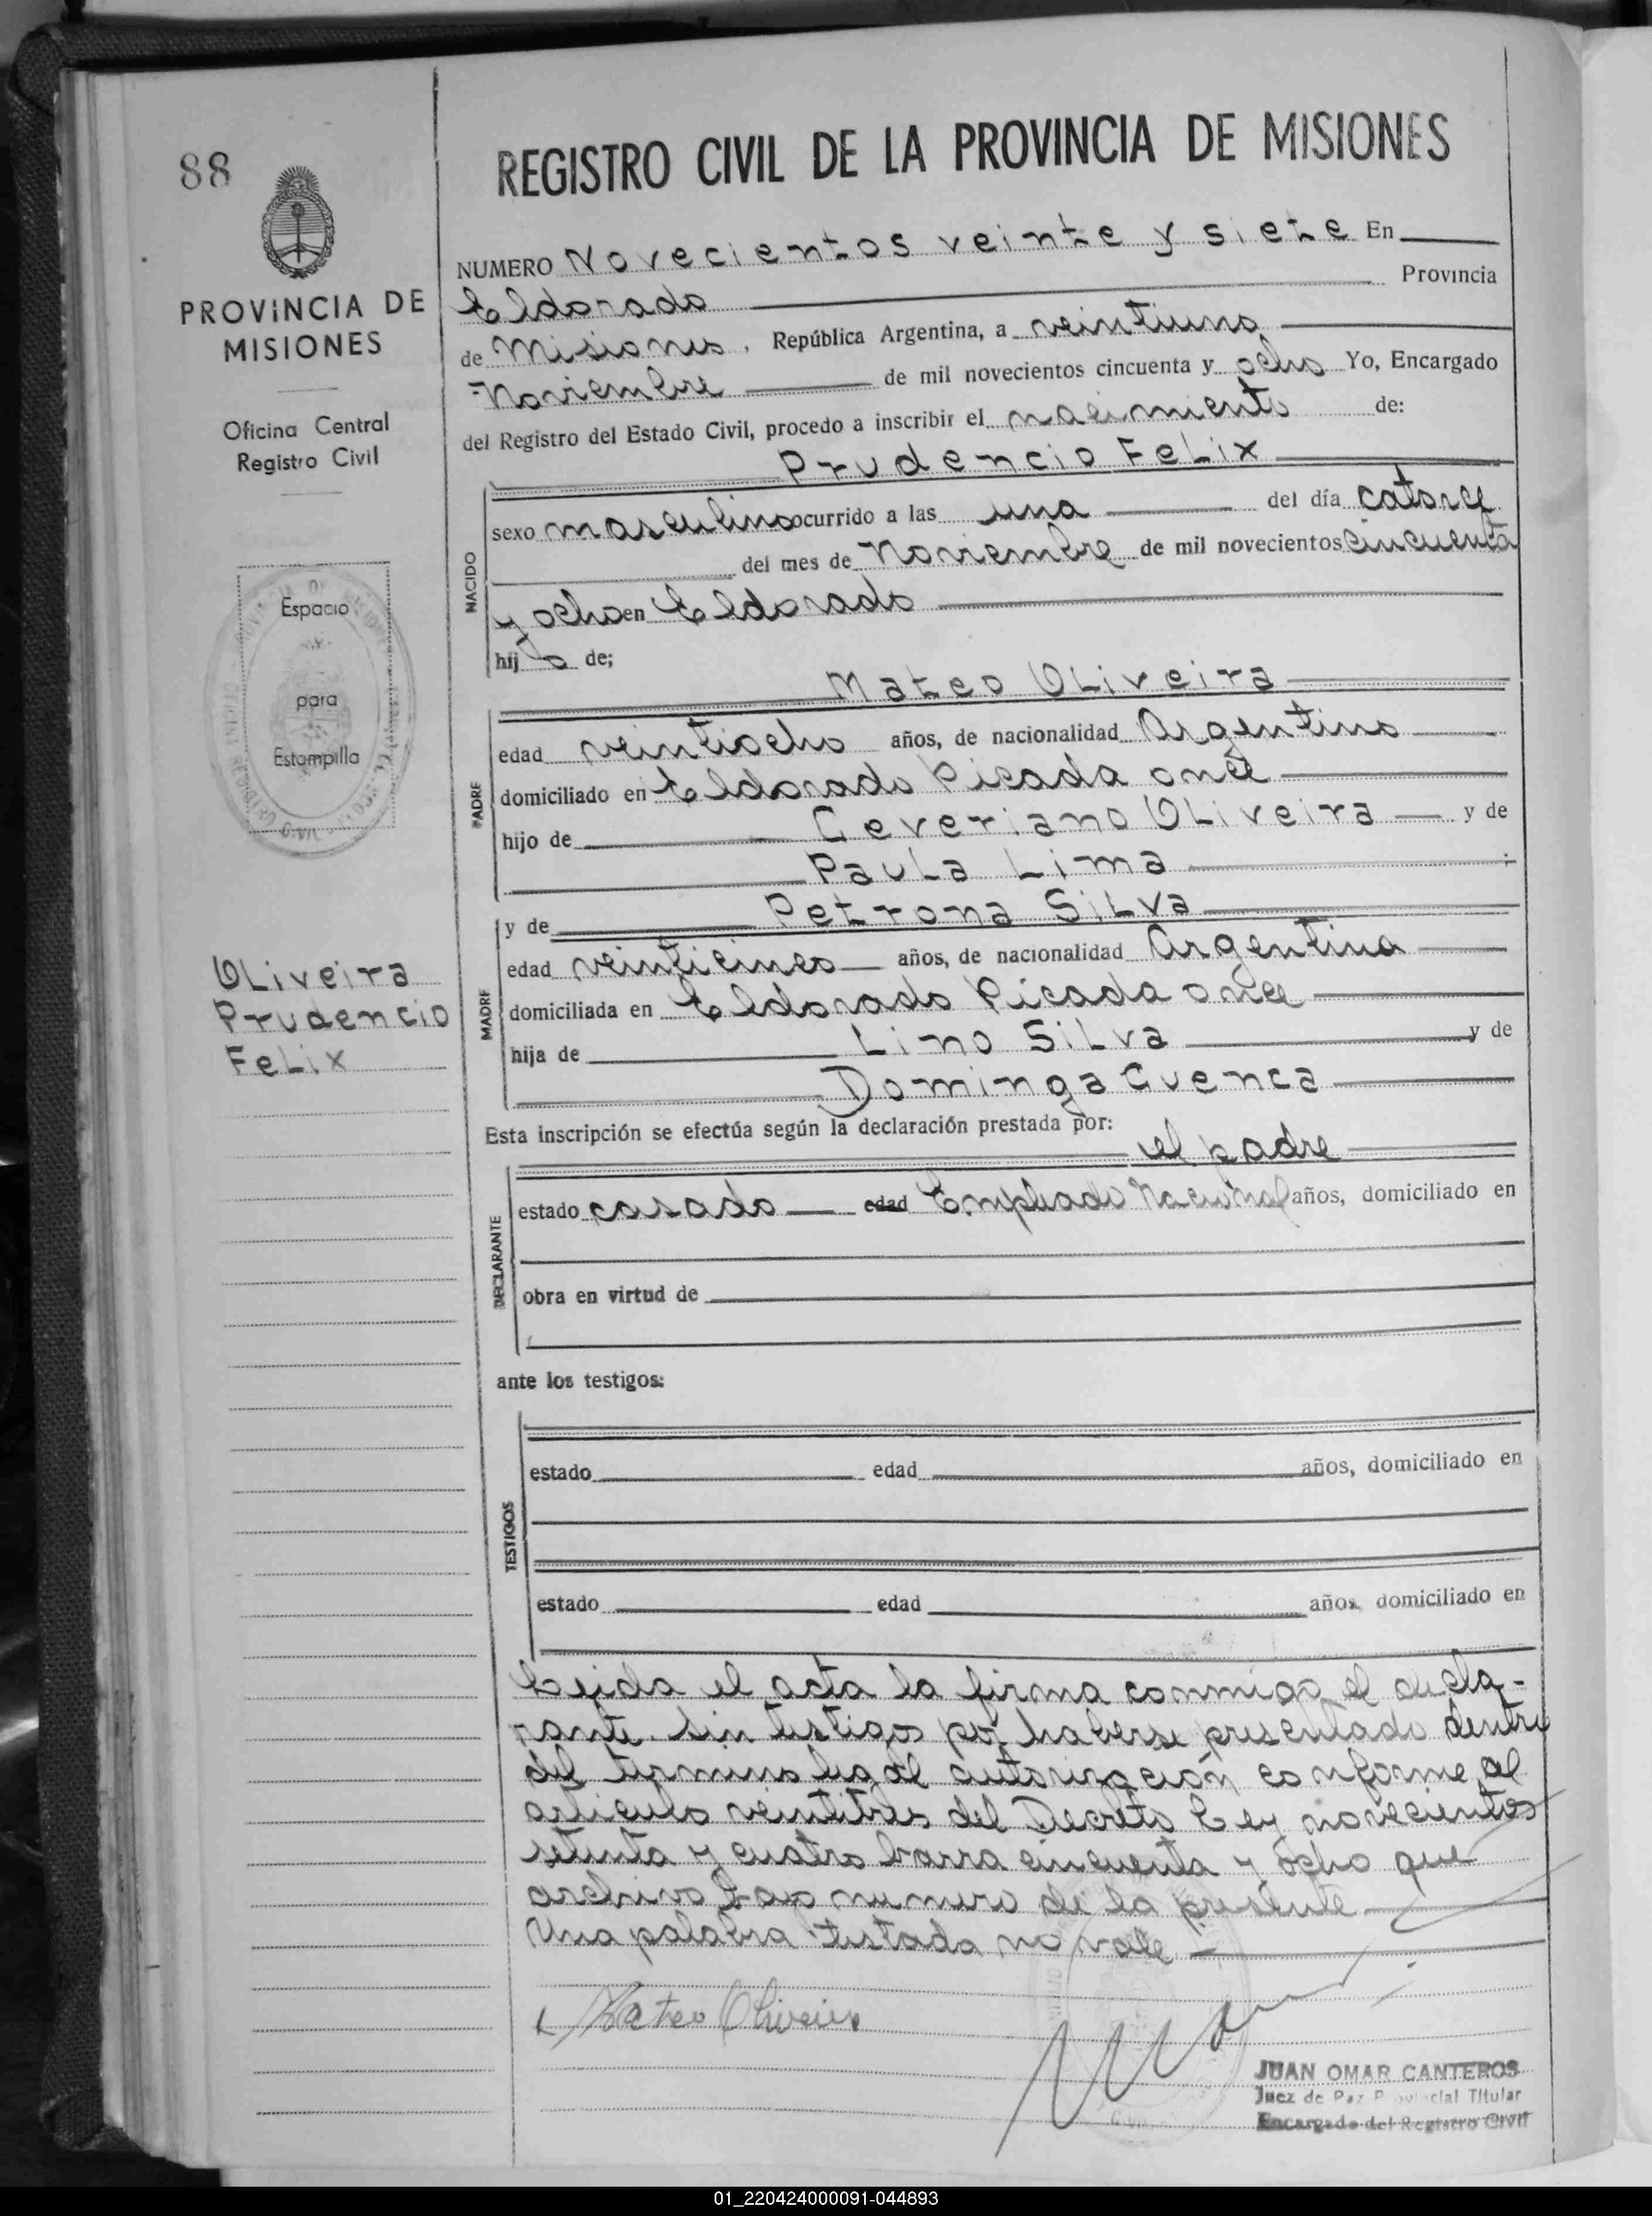 88
PROVINCIA DE
MISIONES
Oficina Central
Registro Civil
Espacio
para
Estampilla
OLiveira
Prudencio
FeLix
REGISTRO CIVIL DE LA PROVINCIA DE MISIONES
NUMERO Novecientos veinte y siete En
Eldorado Provincia
de Misiones, República Argentina, a veintiuno
Noviembre de mil novecientos cincuenta y ocho Yo, Encargado
del Registro del Estado Civil, procedo a inscribir el nacimiento de:
Prudencio FeLix
NACIDO
sexo masculino ocurrido a las una del día catorce
del mes de Noviembre de mil novecientos cincuenta
y ocho en Eldorado
hijo de;
Mateo OLiveira
PADRE
edad veintiocho años, de nacionalidad Argentino
domiciliado en Eldorado Picada once
hijo de Ceveriano OLiveira y de
PauLa Lima
y de Petrona SiLva
MADRE
edad veinticinco años, de nacionalidad Argentina
domiciliada en Eldorado Picada once
hija de Lino SiLva y de
Dominga Cuenca
Esta inscripción se efectúa según la declaración prestada por:
el padre
DECLARANTE
estado casado edad Empleado Nacional años, domiciliado en
obra en virtud de
ante los testigos:
TESTIGOS
estado edad años, domiciliado en
estado edad años, domiciliado en
Leida el acta la firma conmigo el decla-
rante sin testigos por haberse presentado dentro
del termino legal autorización conforme al
articulo veintitres del Decreto Ley novecientos
setenta y cuatro barra cincuenta y ocho que
archivo bajo numero de la presente
Una palabra testada no vale
Mateo Oliveira
JUAN OMAR CANTEROS
Juez de Paz Provincial Titular
Encargado del Registro Civil
01_220424000091-044893